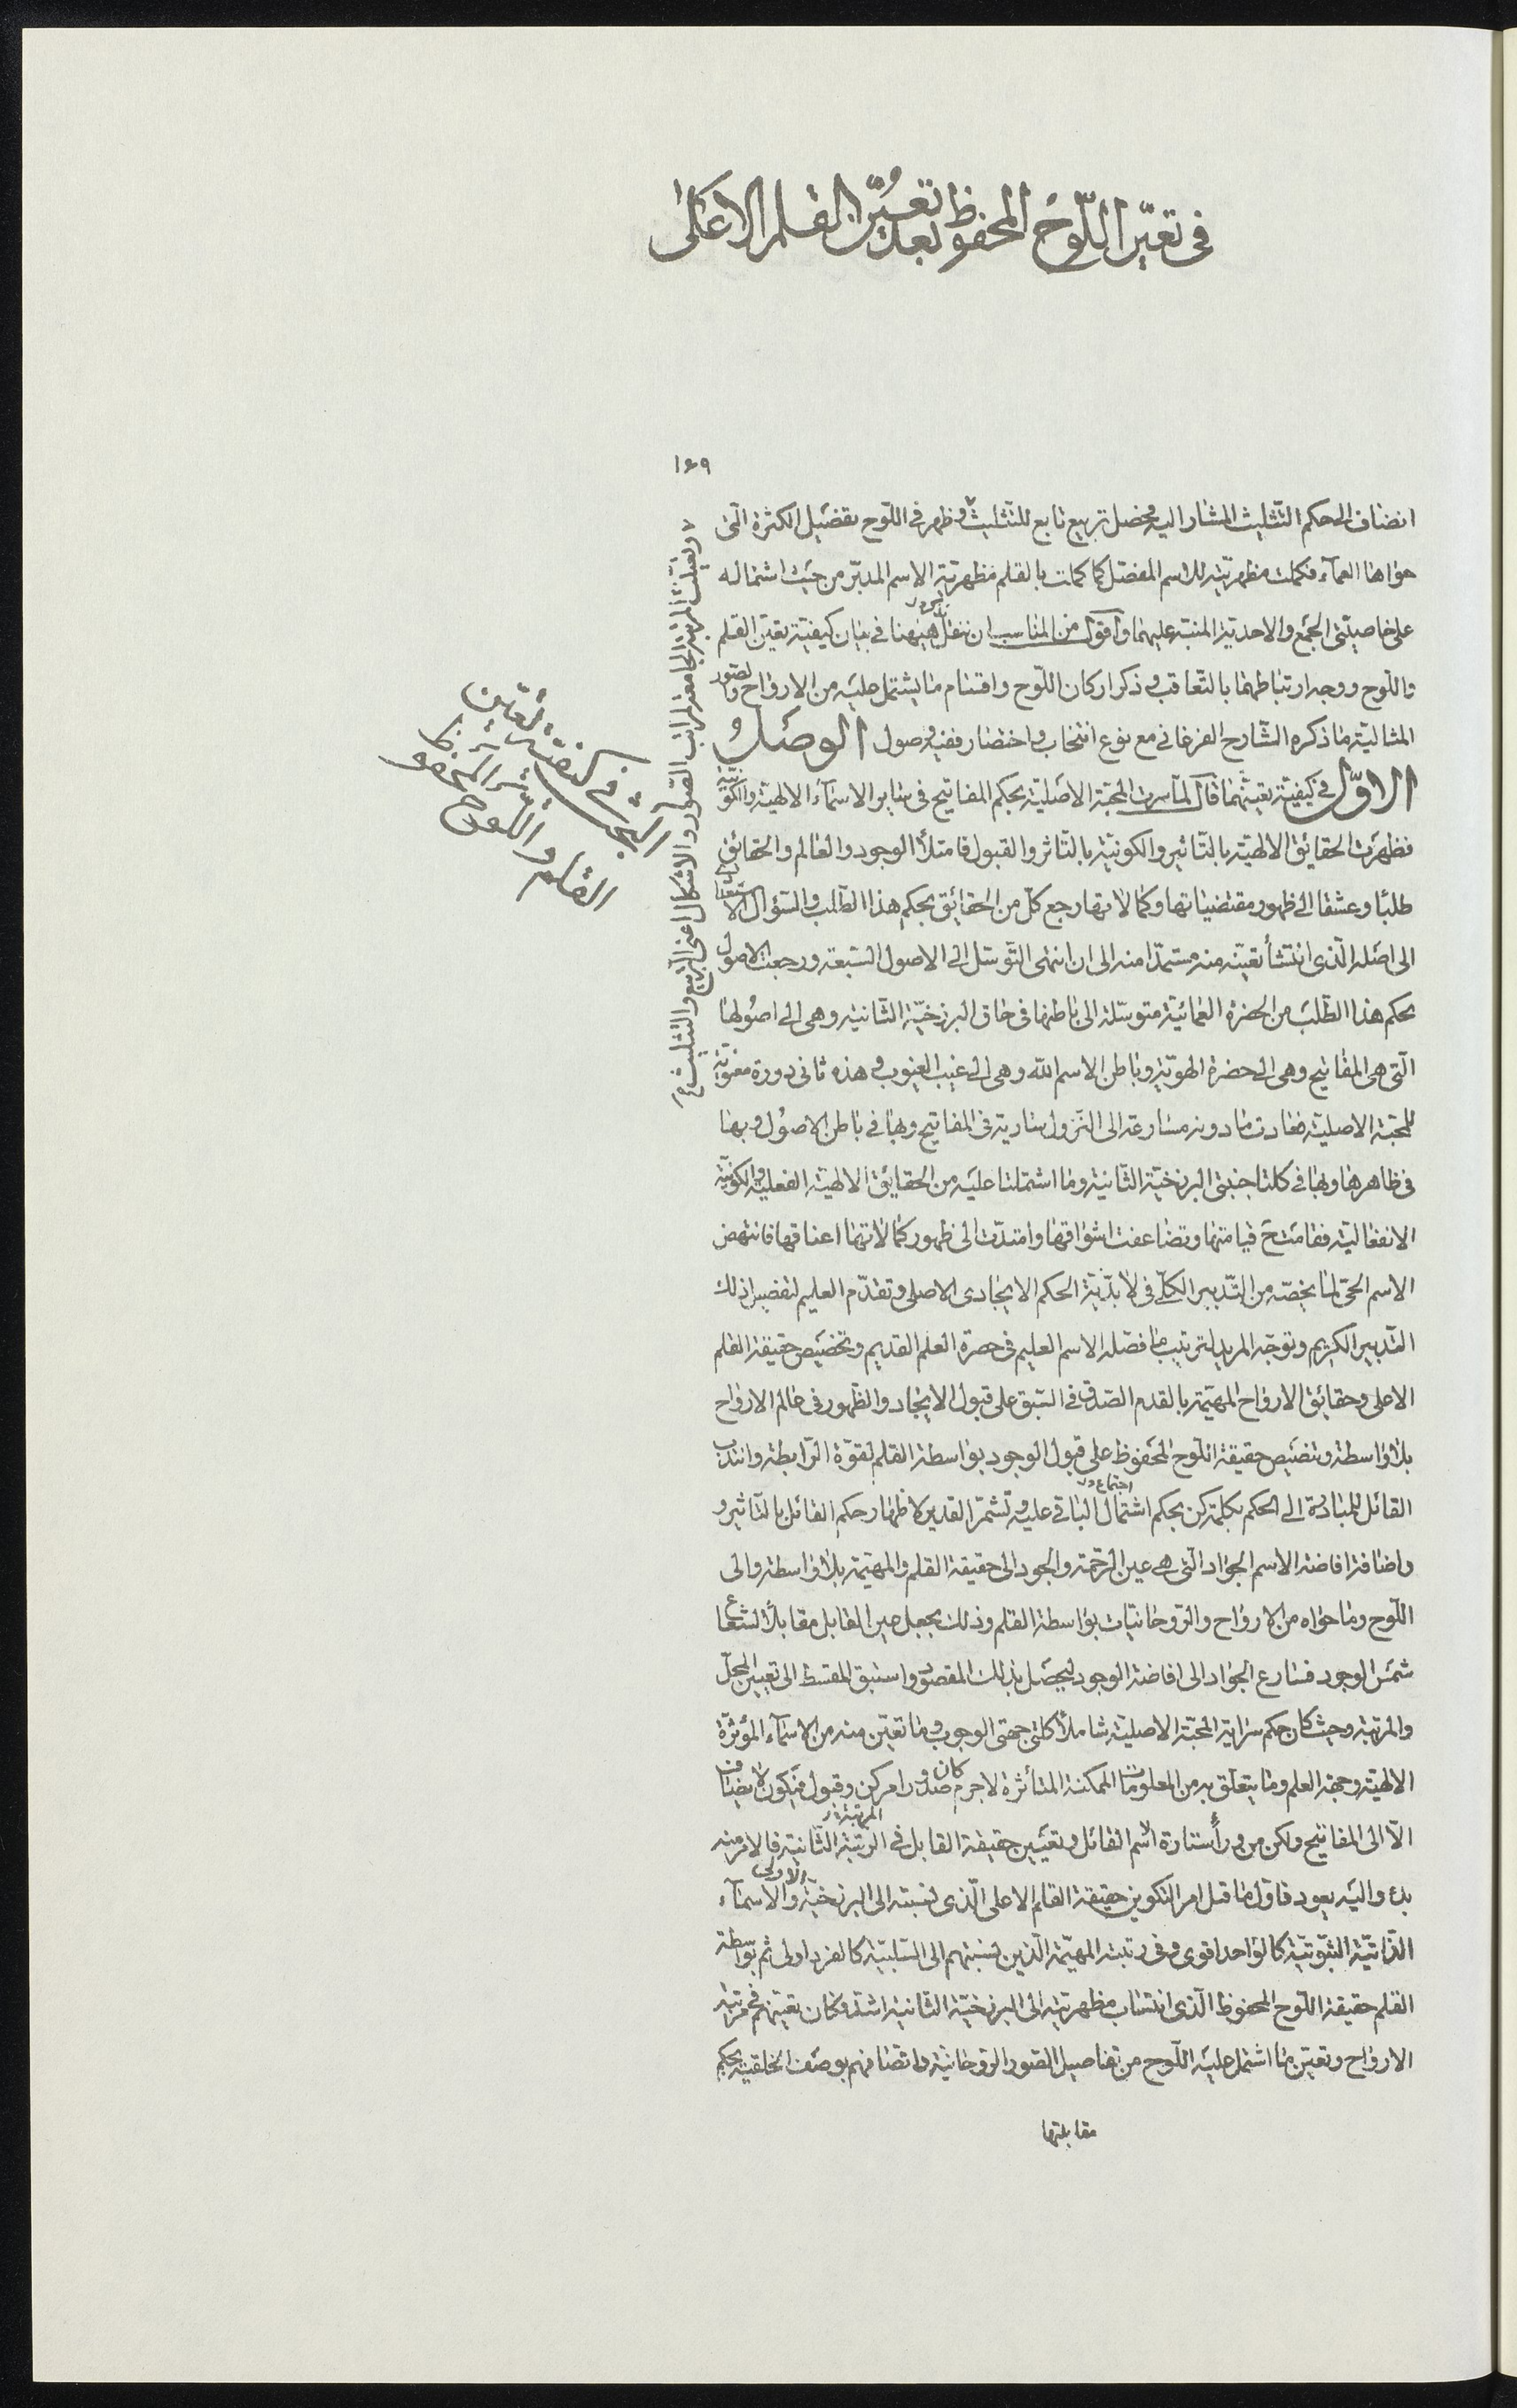 فى تعيّن اللّوح المحفوظ بعد تعيُّن القلم الاعلىٰ
١٤٩
انضاف الى حكم التّثليث المشار اليه فحصل تربيع تابع للتّثليث وظهر فى اللّوح تفصيل الكثرة الّتى
حواها العمآء فكملت مظهريّته للاسم المفصّل كما كملت بالقلم مظهريّة الاسم المدبّر من حيث اشتماله
على خاصيّتى الجمع والاحديّة المنبّه عليهما واقول من المناسب ان ننقل ههنا فى بيان كيفيّة تعيّن القلم
واللّوح ووجه ارتباطهما بالتّعاقب وذكر اركان اللّوح واقسام ما يشتمل عليه من الارواح والصّور
المثاليّة ما ذكره الشّارح الفرغانى مع نوع انتخاب واختصار ففيه وصول الوصل
الاوّل فى كيفيّة تعيّنهما قال لما سرت المحبّة الاصليّة بحكم المفاتيح فى ساير الاسمآء الالهيّة والكونيّة
فظهرت الحقايق الالهيّة بالتّاثير والكونيّة بالتّاثر والقبول فامتلأ الوجود والعالم والحقائق
طلبًا وعشقا الى ظهور مقتضياتها وكمالاتها رجع كلّ من الحقائق بحكم هذا الطّلب والسّؤال الاستعدادى
الى اصله الّذى انتشأ تعيّنه منه مستمدّا منه الى ان انتهى التّوسّل الى الاصول السّبعة ورجعت الاصول
بحكم هذا الطّلب من الحضرة العمائيّة متوسّلة الى باطنها فى حاق البرزخيّة الثّانية وهى الى اصولها
الّتى هى المفاتيح وهى الى حضرة الهويّة وباطن الاسم الله وهى الى غيب الغيوب وهذه ثانى دورة معنويّة
للمحبّة الاصليّة فعادت مادونه مسارعة الى النّزول سارية فى المفاتيح وبها فى باطن الاصول وبها
فى ظاهرها وبها فى كلتا جنبتى البرزخيّة الثّانية وما اشتملتا عليه من الحقايق الالهيّة الفعليّة والكونيّة
الانفعاليّة فقامت قيامتها وتضاعفت اشواقها وامتدّت الى ظهور كمالاتها اعناقها فانتهض
الاسم الحىّ لما يخصّه من التّدبير الكلّى فى لابدّيّة الحكم الايجادى الاصلى وتقدّم العليم لتفصيل ذلك
التّدبير الكريم وتوجّه المريد لترتيب ما فصّله الاسم العليم فى حضرة العلم القديم وتخصيص حقيقة القلم
الاعلى وحقائق الارواح المهيّمة بالقدم الصّدق فى السّبق على قبول الايجاد والظّهور فى عالم الارواح
بلا واسطة وتخصيص حقيقة اللّوح المحفوظ على قبول الوجود بواسطة القلم لقوّة الرّابطة وانتدب
القائل للمبادرة الى الحكم بكلمة كن بحكم اشتمال الباقى عليه وتشمّر القدير لاظهار حكم القائل بالتّاثير و
واضافة افاضة الاسم الجواد الّتى هى عين الرّحمة والجود الى حقيقة القلم والمهيّمة بلا واسطة والى
اللّوح وما حواه من الارواح والرّوحانيّات بواسطة القلم وذلك بجعل عين القابل مقابلًا لشعاع
شمس الوجود فسارع الجواد الى افاضة الوجود ليحصل بذلك المقصود واستبق المقسط الى تعيين المحلّ
والمرتبة وحيث كان حكم سراية المحبّة الاصليّة شاملًا كلتى جهتى الوجوب وما تعيّن منه من الاسمآء المؤثرة
الالهيّة وجهة العلم وما يتعلّق به من المعلومات الممكنة المتأثرة لاجرم كان صدور امر كن وقبول فيكون لا يضاف
الّا الى المفاتيح ولكن من ورآء ستارة اسم القائل وتعيين حقيقة القابل فى الرّتبة الثّانية فالامر منه
بدء واليه يعود فاوّل ما قبل امر التكوين حقيقة القلم الاعلى الّذى نسبته الى البرزخيّة الاولى والاسمآء
الذّاتيّة الثبوتيّة كالواحد اقوى وفى رتبته المهيّمة الّذين نسبتهم الى السّلبيّة كالفرد اولى ثم بواسطة
القلم حقيقة اللّوح المحفوظ الّذى انتساب مظهريّته الى البرزخيّة الثّانية اشدّ وكان تعيّنهم فى مرتبة
الارواح وتعيّن ما اشتمل عليه اللّوح من تفاصيل الصّور الرّوحانيّة واتّصافهم بوصف الخلقيّة بحكم
مقابلتها
وتعيّنت المرتبة الجامعة لمراتب الصّور والاشكال اعنى التّربيع والتّثليث